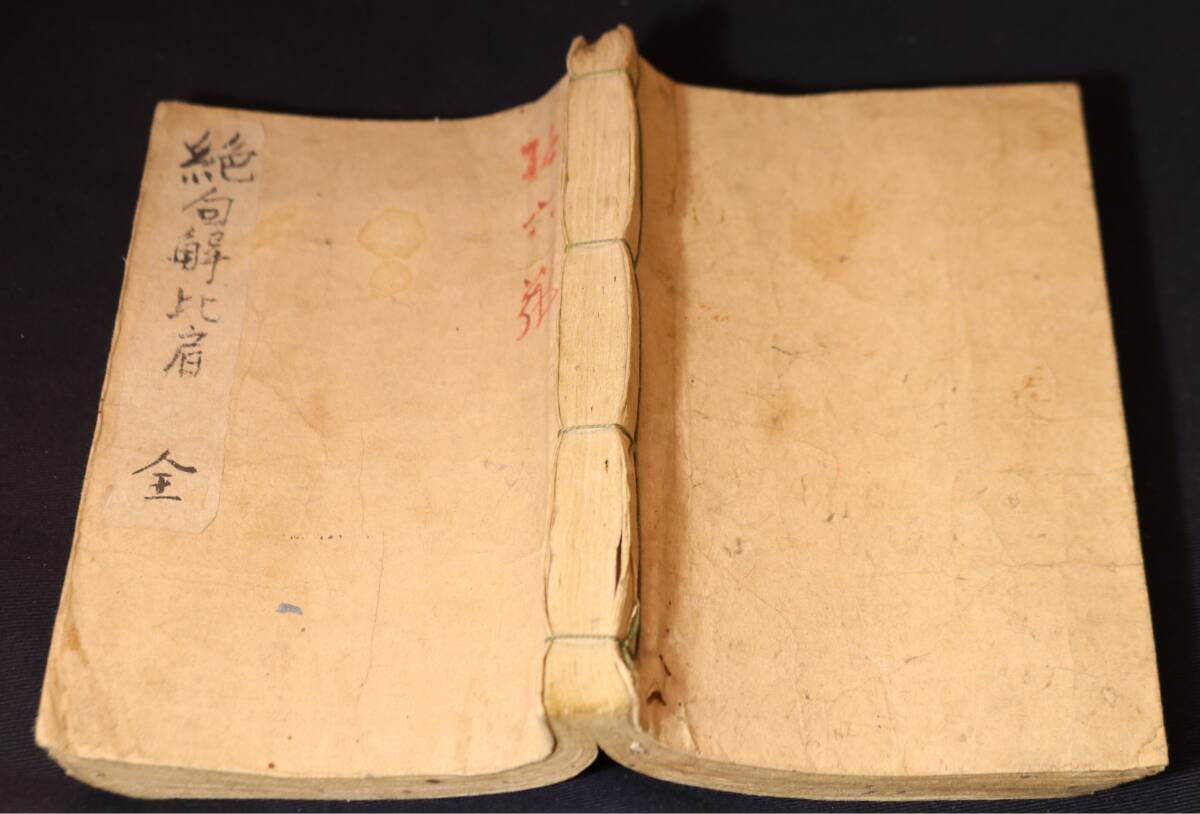 絶句解比肩 全
六